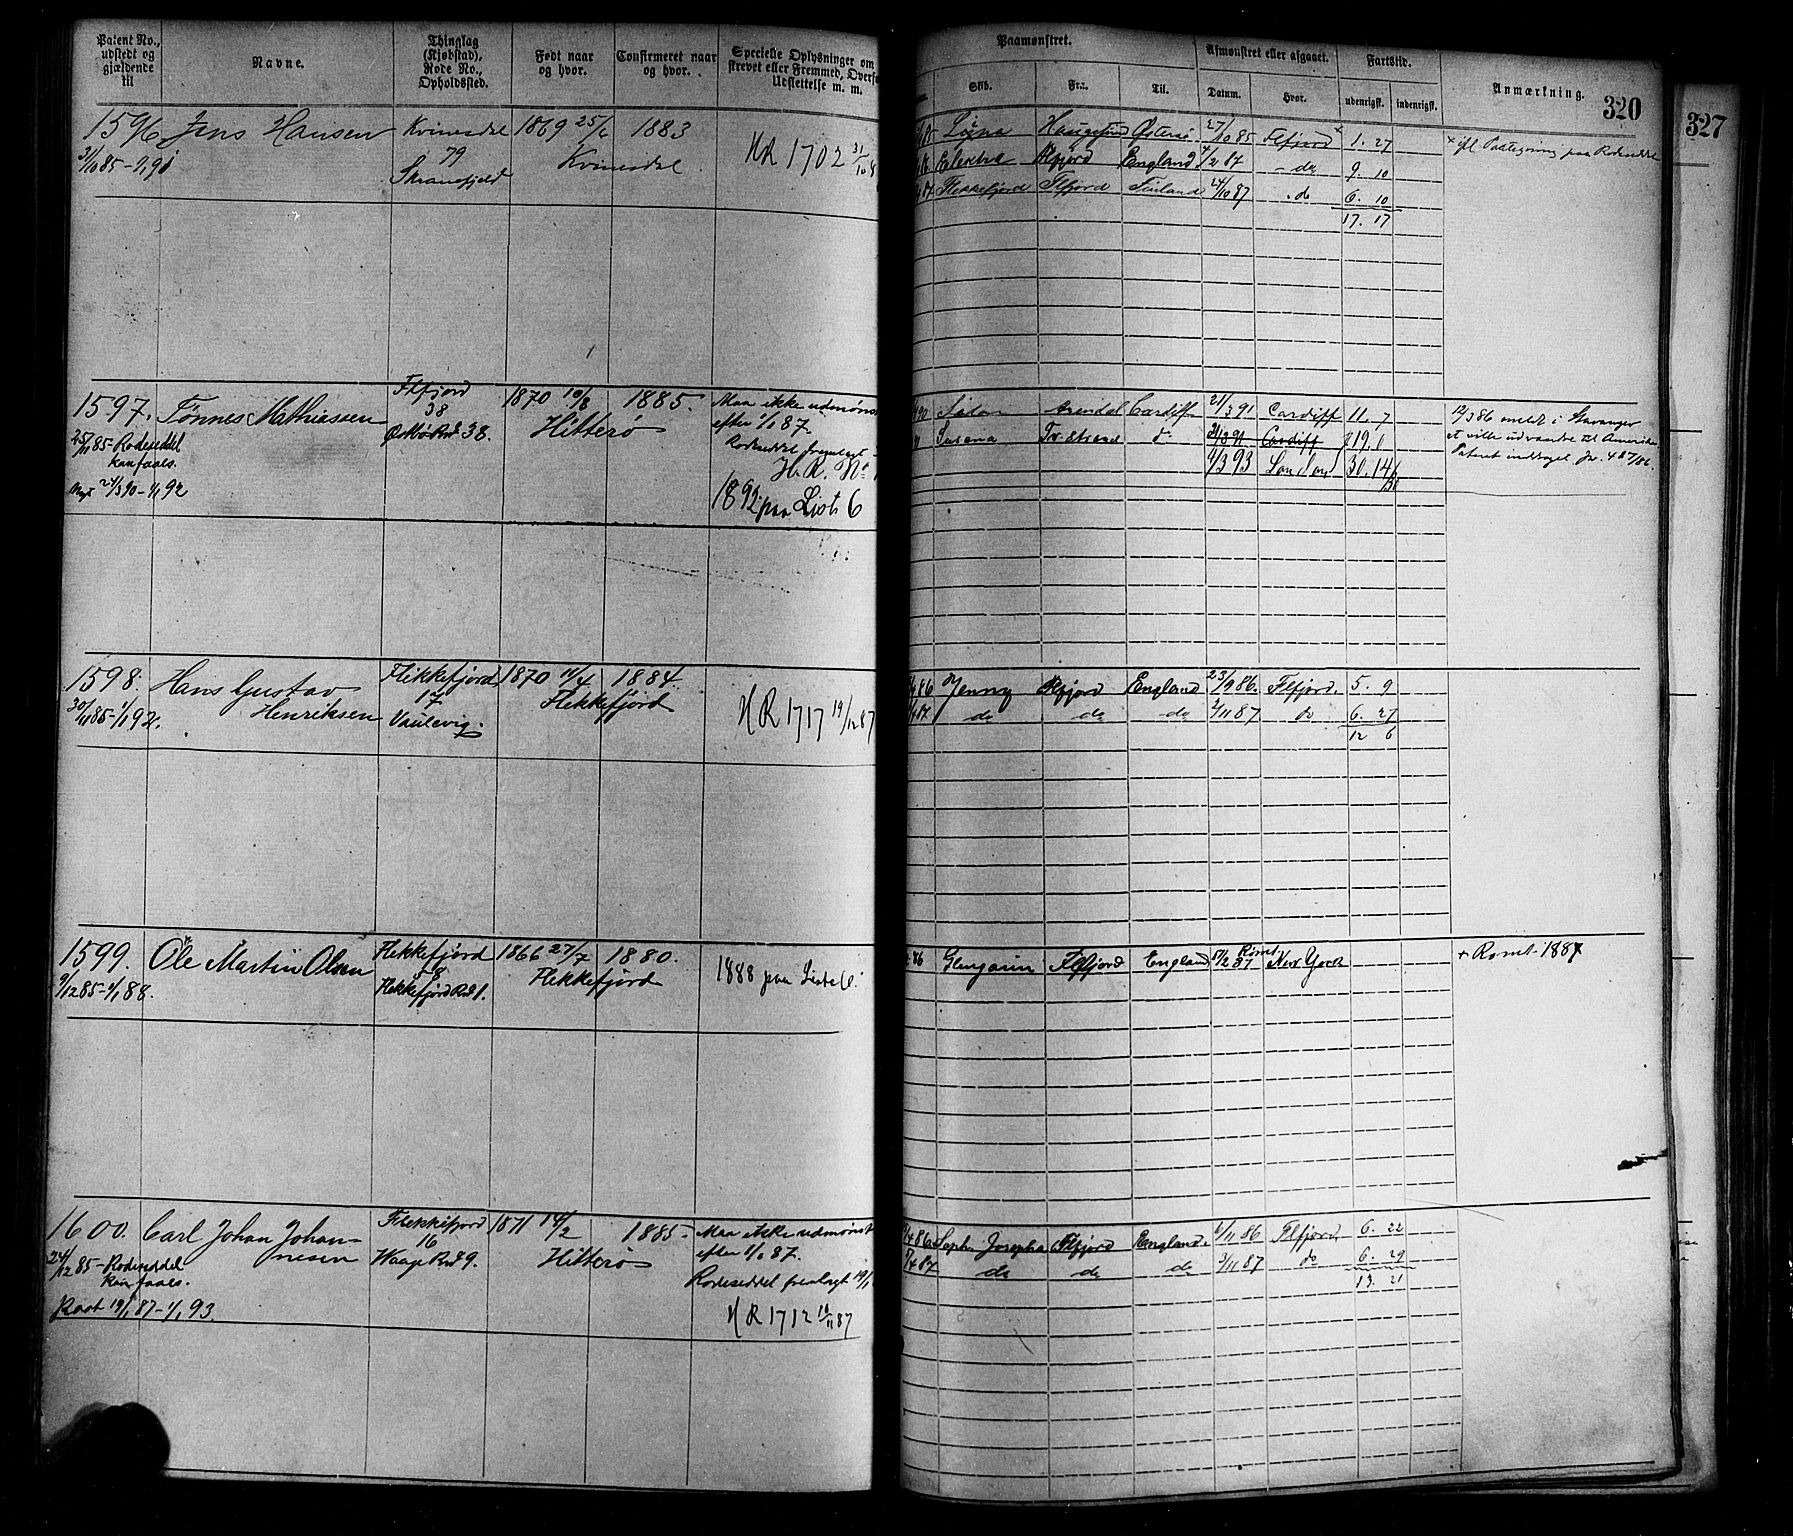 Patent No., udstedt og gjældende til
Navne.
Thinglag (Kjøbstad), Rode No., Opholdssted.
Født naar og hvor.
Confirmeret naar og hvor.
Specielle Oplysninger om
strevet eller Fremmed, Overf
Udslettelse m. m.
Paamønstret.
Skib.
Fra.
Til.
Afmønstret eller afgaaet.
Datum.
Hvor.
Fartstid.
udenrigsk.
indenrigsk.
Anmærkning.
320
327
1596 Jens Hansen Kvinesdal 1869 25/6 1883
31/10 85 - 1/1 91
79 Kvinesdal
HR 1702 31/10 8
Haugesund Østersø 27/10 85 Flfjord 1. 27
Flfjord England 7/2 87 - do 9. 10
Flekkefjord Flfjord Finland 24/10 87 . do 6. 10
17. 17
1597. Tønnes Mathiassen Flfjord 38 1870 10/8 1885. Maa ikke udmønst
25/11 85 - Rodeseddel kun faaet. 38. Hitterø efter 1/1 87.
Rodeseddel fremlagt
H. R. No
Nyt 24/3 90 - 1/1 92
1892 paa Liste 6
90 Arendal Cardiff 21/3 91 Cardiff 11. 7
Susana do 21/3 91 Cardiff 19. 1
1/3 93 London 30. 14
12/3 86 meldt i Stavanger
at ville udvandre til Amerika
Patent inddraget Jr. 487/86.
1598. Hans Gustav Henriksen Flekkefjord 17 1870 11/4 1884.
30/11 85 - 1/1 92. Vaulevig. Flekkefjord
HR 1717 19/12 87
4 86 Jenny Flfjord England 23/9 86. Flfjord. 5. 9
4 87 do do do 2/11 87 do 6. 27
12 6
1599. Ole Martin Olsen Flekkefjord 1866 27/7 1880.
9/12 85 - 1/1 88. Flekkefjord Rd 1. Flekkefjord
1888 paa Liste
86 Flfjord England 17/2 87 Rømt New York
+ Rømt 1887
1600. Carl Johan Johannesen Flekkefjord 16 1871 14/2 1885 - Maa ikke udmønst
24/12 85 - Rodeseddel kun faaet. Waage Rd 9. Hitterø efter 1/1 87.
Rodeseddel fremlagt 19/1
Patt 19/1 87 - 1/1 93.
HR 1712 18/11 87
4 86 Soph. Josepha Flfjord England. 6/11 86 Flfjord. 6. 22
7/4 87 do do do 3/11 87 do 6. 29
13. 21